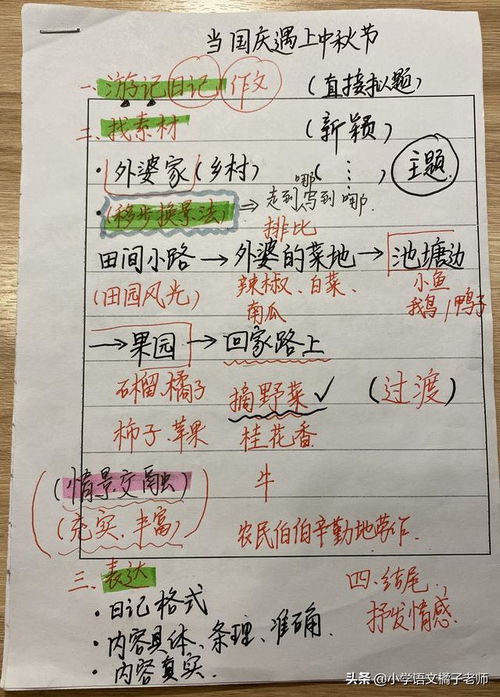 当国庆遇上中秋节
一、游记 日记 作文 (直接拟题)
二、找素材 (新颖)
·外婆家(乡村) ( ⋮ ) 主题
·(移步换景法) ⇒ 走到哪写到哪.
排比
田间小路→外婆的菜地→池塘边
(田园风光) 辣椒、白菜、 小鱼
南瓜 我鸟/鸭子
→果园→回家路上
石榴.橘子 摘野菜✓ (过渡)
柿子.苹果 桂花香
(情景交融) 牛
(充实.丰富) 农民伯伯辛勤地劳作.
三、表达 四.结尾.
·日记格式 抒发情感.
·内容具体、条理、准确.
·内容真实.
头条 @小学语文橘子老师